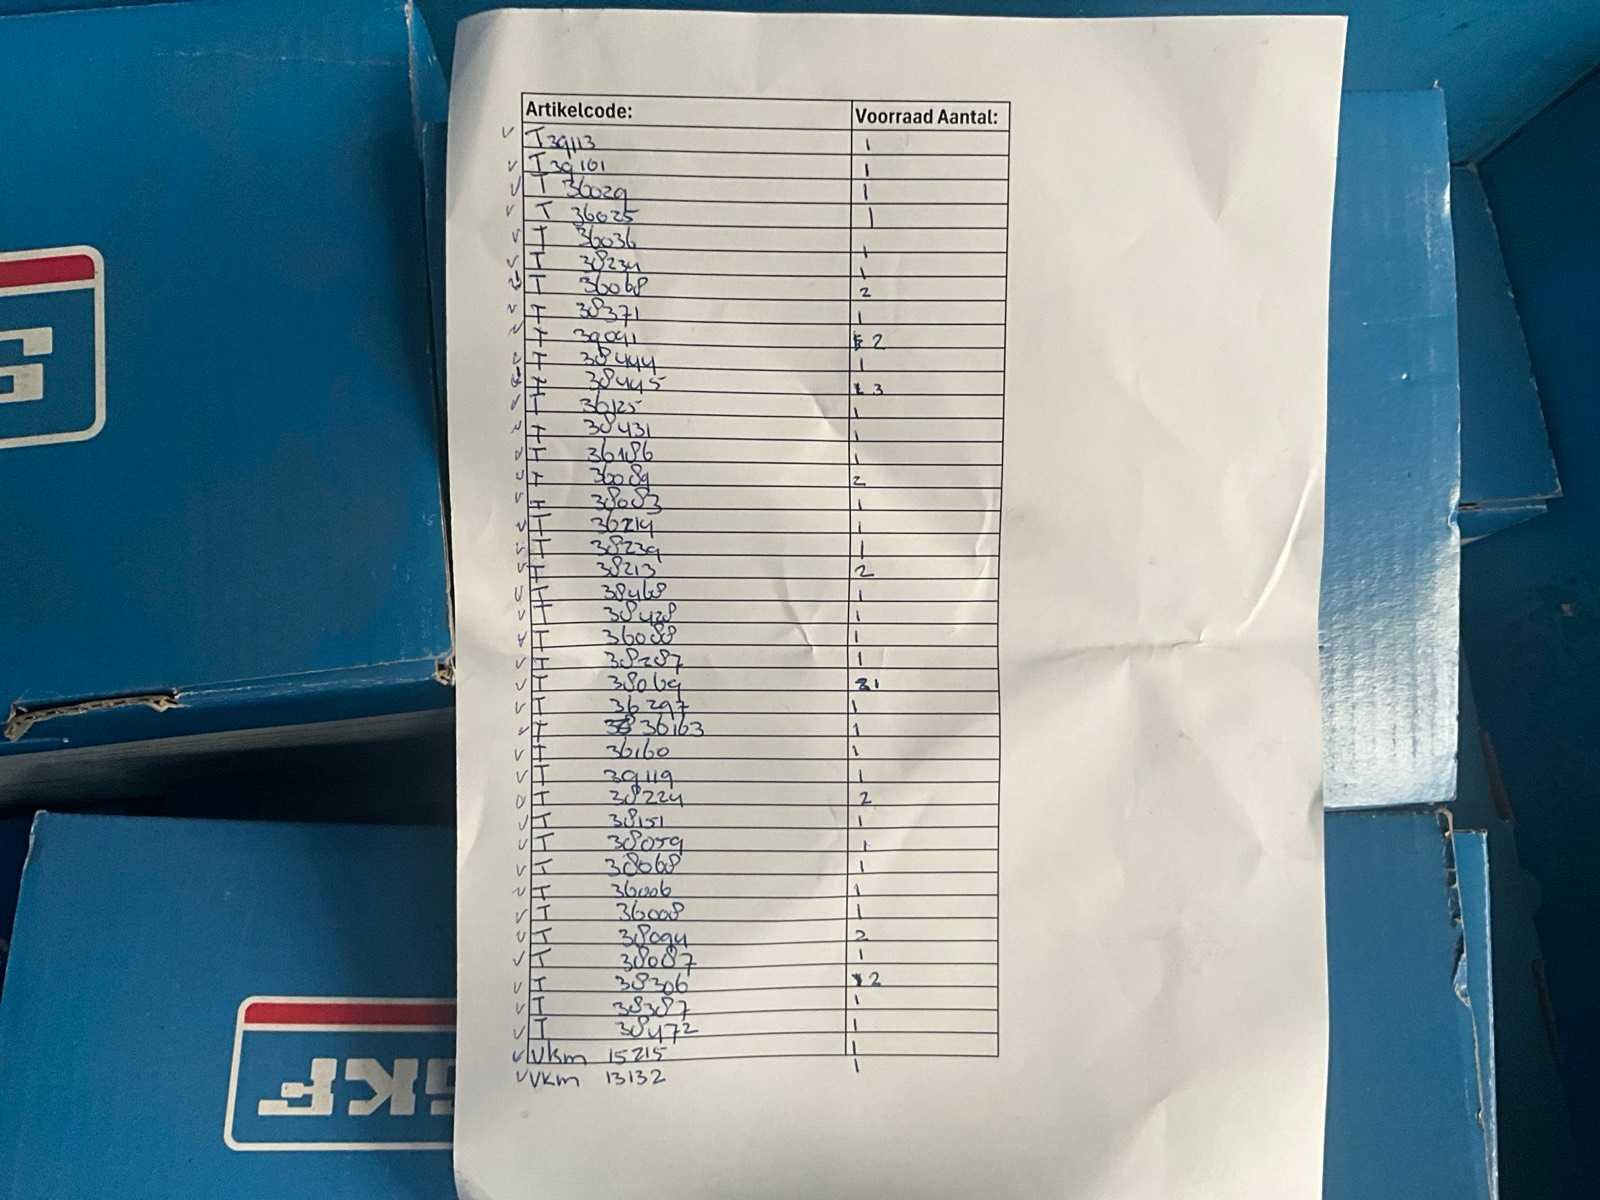 Artikelcode: Voorraad Aantal:
V T 39113 1
V T 39101 1
V T 36029 1
V T 36025 1
V T 36036 1
V T 38234 1
V T 36068 2
V T 38371 1
V T 39091 2
V T 38444 1
V T 38445 3
V T 36125 1
V T 38431 1
V T 36186 1
V T 36089 2
V T 38083 1
V T 36219 1
V T 38239 1
V T 38213 2
V T 38468 1
V T 38428 1
V T 36088 1
V T 38287 1
V T 38069 1
V T 36297 1
V T 36163 1
V T 36160 1
V T 39119 1
V T 38224 2
V T 38151 1
V T 38059 1
V T 38068 1
V T 36006 1
V T 36008 1
V T 38094 2
V T 38087 1
V T 38306 2
V T 38387 1
V T 38472 1
V Vkm 15215 1
V Vkm 13132 1
SKF